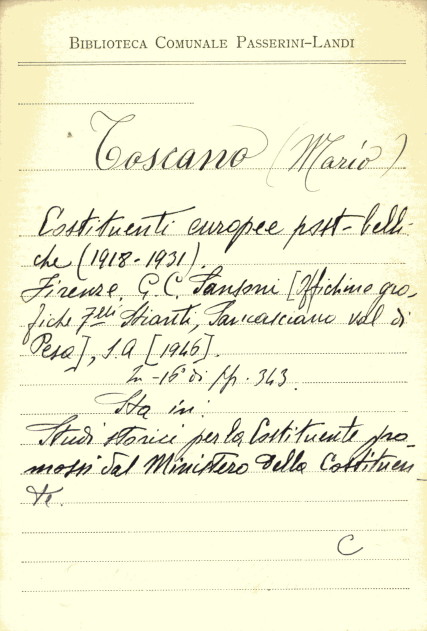 BIBLIOTECA COMUNALE PASSERINI-LANDI
Toscano (Mario)
Costituenti europee post-belli-
che (1918-1931).
Firenze, G. C. Sansoni [Officine gra-
fiche F.lli Stianti, Sancasciano val di
Pesa], s.a [1946].
In-16° di pp. 343.
Sta in:
Studi storici per la Costituente pro-
mossi dal Ministero della Costituen-
te.
C